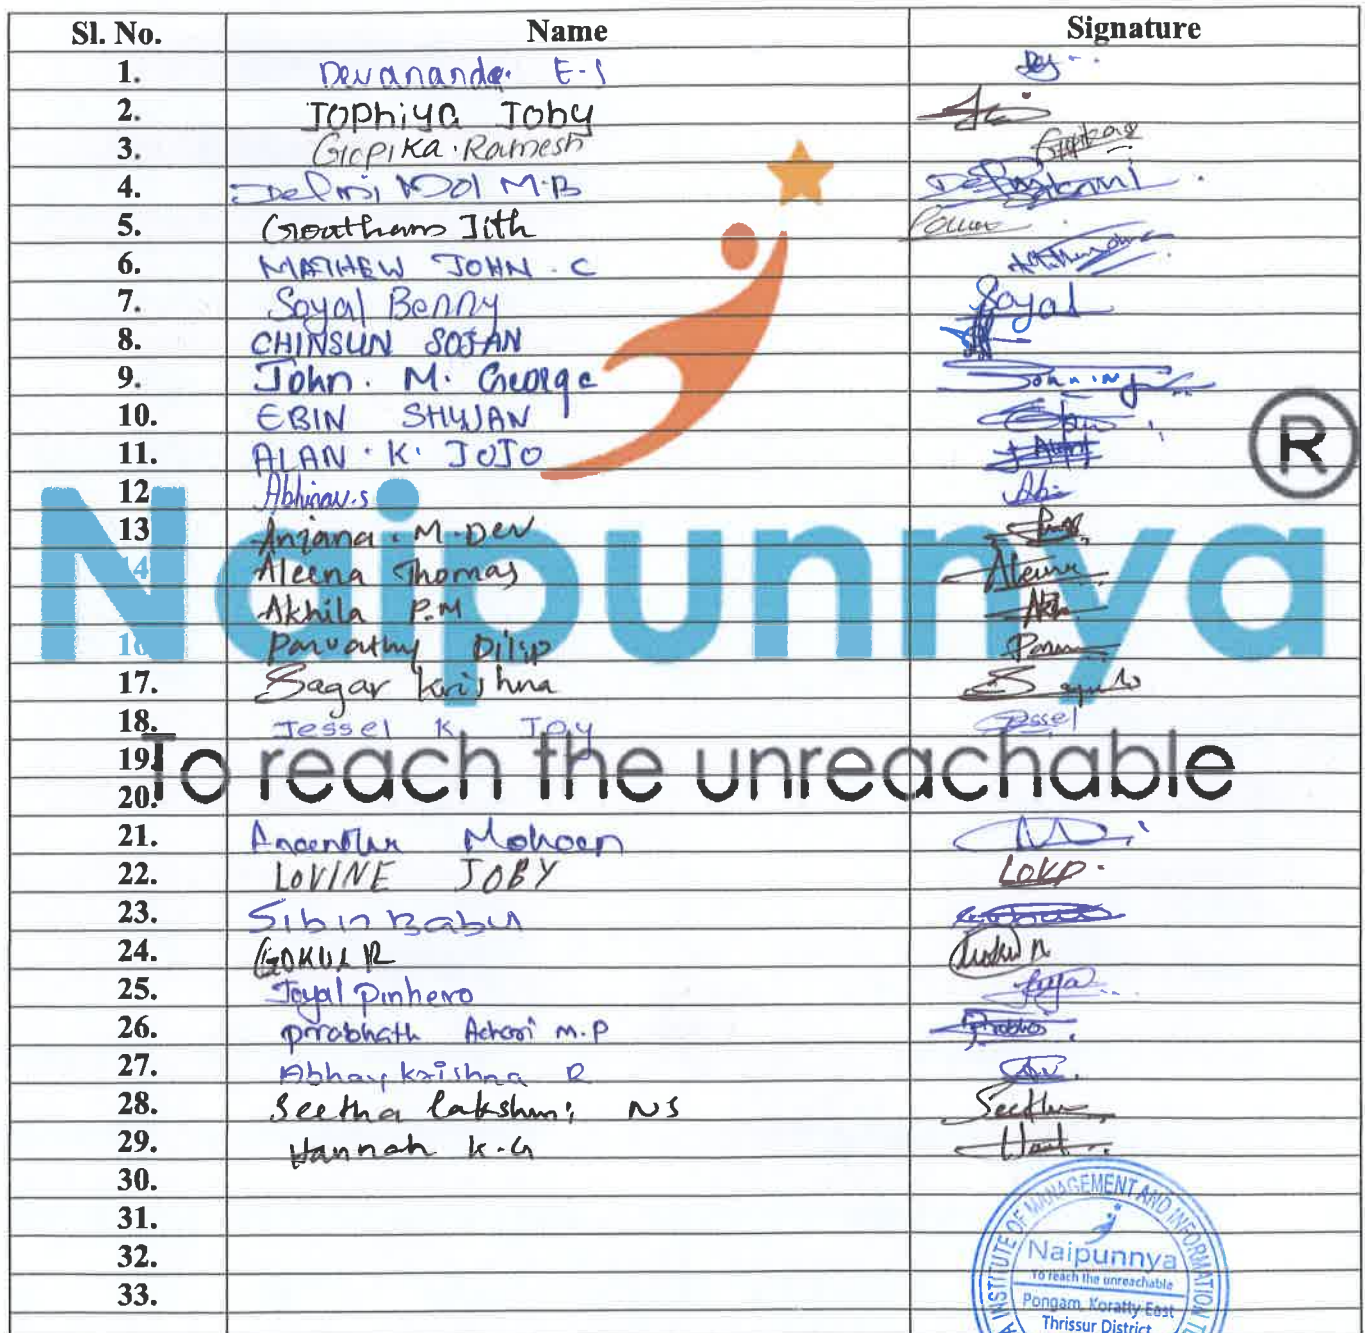 Sl. No. Name Signature
1. Devananda. E-S
2. Jophiya Joby
3. Gopika. Ramesh
4. M.B
5. Goutham Jith
6. MATHEW JOHN. C
7. Soyal Benny Soyal
8. CHINSUN SOJAN
9. John. M. George
10. EBIN SHYJAN
11. ALAN. K. JOJO
12 Abhinav.s Abi
13 Anjana. M. Dev
14 Aleena Thomas
Akhila P.M
16 Parvathy Dilip
17. Sagar Krishna
18. Jessel K Joy Jessel
19.
20.
Naipunnya ®
To reach the unreachable
21. Mohan
22. LOVINE JOBY
23. Sibin Babu
24. GOKUL R Gokul R
25. Joyal Pinhero
26. Prabhath Achari M.P
27. Abhay krishna R
28. Seetha lakshmi NS
29. Hannah K.G
30.
31.
32.
33.
INSTITUTE OF MANAGEMENT AND INFORMATION
Naipunnya
To reach the unreachable
Pongam, Koratty East
Thrissur District